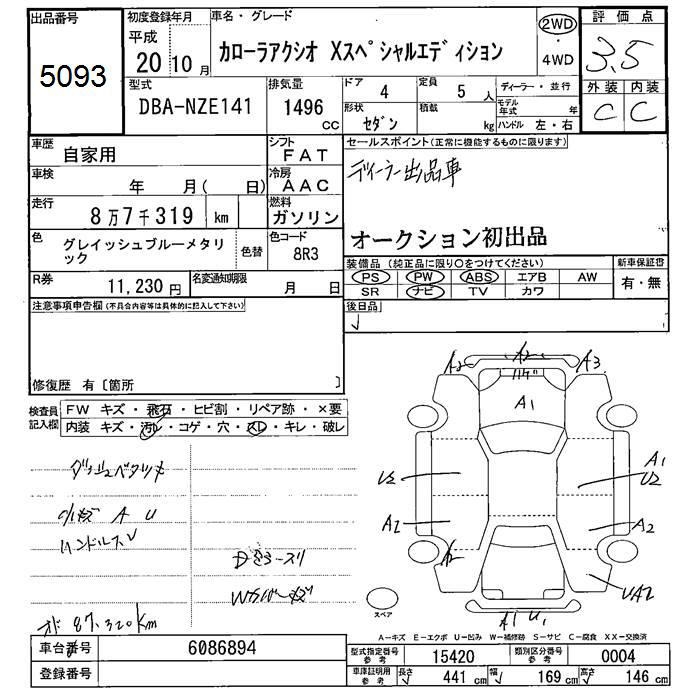 出品番号
5093
初度登録年月
平成
20 10 月
車名・グレード
カローラアクシオ Xスペシャルエディション
2WD
・
4WD
評価点
3.5
外装 内装
C C
型式
DBA-NZE141
排気量
1496
CC
ドア
4
定員
5 人
形状
セダン
積載
kg
ディーラー・並行
モデル年式 年
ハンドル 左・右
車歴
自家用
シフト
FAT
車検
年 月( 日)
冷房
AAC
走行
8万7千319 km
燃料
ガソリン
色
グレイッシュブルーメタリック
色替
色コード
8R3
R券
11,230 円
名変通知期限
月 日
セールスポイント(正常に機能するものに限ります)
ディーラー出品車
オークション初出品
装備品(純正品に限り○をつけてください)
PS PW ABS エアB AW
SR ナビ TV カワ
新車保証書
有・無
後日品
注意事項申告欄(不具合内容等は具体的に記入して下さい)
修復歴 有〔箇所 〕
検査員
記入欄
FW キズ・飛石・ヒビ割・リペア跡・×要
内装 キズ・汚レ・コゲ・穴・スレ・キレ・破レ
A U
ハンドルスレ
オド 87,320km
A2 A2 A3
A1
U2
A1
U2
A2
A2
A2
UA2
A1 U1
スペア
A-キズ E-エクボ U-凹み W-補修跡 S-サビ C-腐食 XX-交換済
車台番号
6086894
登録番号
型式指定番号
参考
15420
類別区分番号
参考
0004
車庫証明用
参考
長さ
441 cm
幅
169 cm
高さ
146 cm